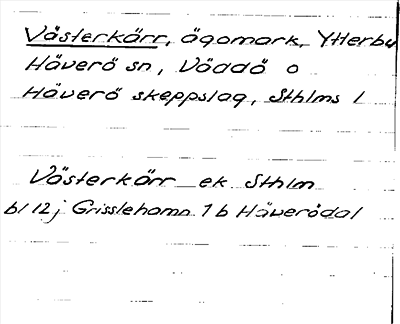 Västerkärr, ägomark, Ytterby
Häverö sn, Väddö o
Häverö skeppslag, Sthlms l
Västerkärr ek Sthlm
bl 12j Grisslehamn 1b Häverödal